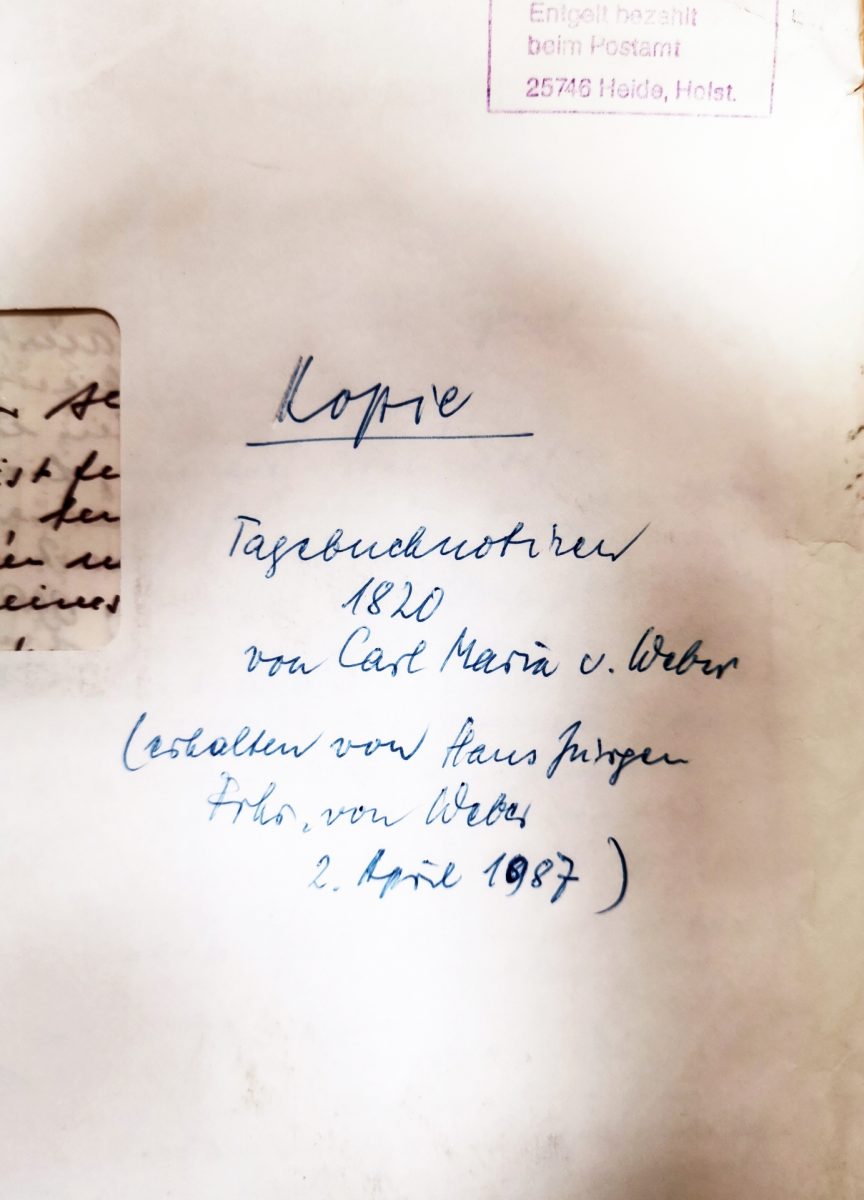 Entgelt bezahlt
beim Postamt
25746 Heide, Holst.
Kopie
Tagebuchnotizen
1820
von Carl Maria v. Weber
(erhalten von Hans Jürgen
Frhr. von Weber
2. April 1987)
ist
eines